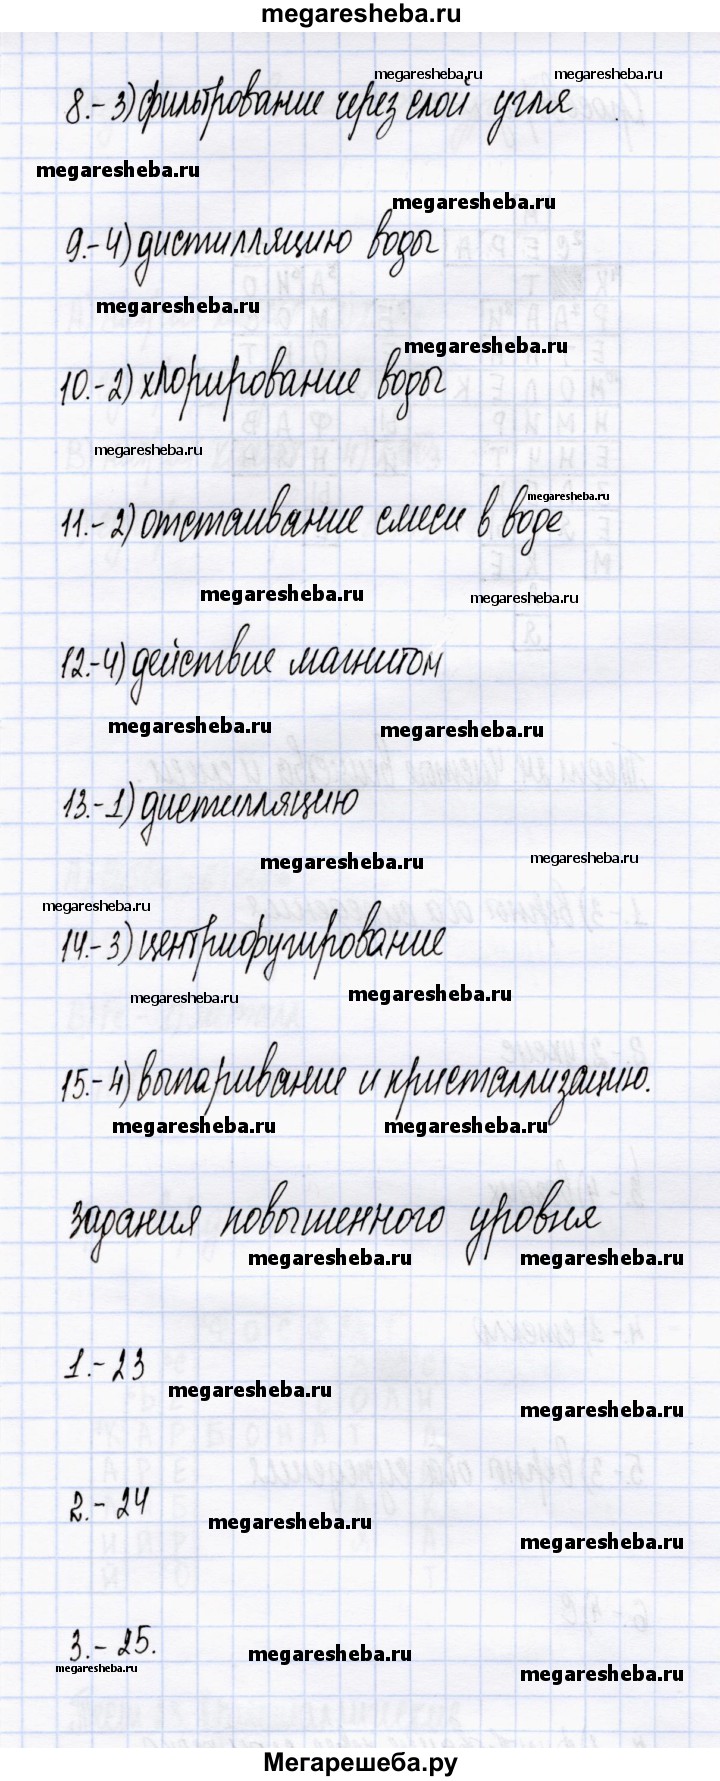 megaresheba.ru
megaresheba.ru megaresheba.ru
8.-3) фильтрование через слой угля
megaresheba.ru
megaresheba.ru
9.-4) дистилляцию воды
megaresheba.ru
megaresheba.ru
10.-2) хлорирование воды
megaresheba.ru
megaresheba.ru
11.-2) отстаивание смеси в воде
megaresheba.ru
megaresheba.ru
12.-4) действие магнитом
megaresheba.ru
megaresheba.ru
13.-1) дистилляцию
megaresheba.ru
megaresheba.ru
megaresheba.ru
14.-3) центрифугирование
megaresheba.ru
megaresheba.ru
15.-4) выпаривание и кристаллизацию.
megaresheba.ru megaresheba.ru
Задания повышенного уровня
megaresheba.ru megaresheba.ru
1.-23
megaresheba.ru
megaresheba.ru
2.-24
megaresheba.ru
megaresheba.ru
3.-25.
megaresheba.ru
megaresheba.ru
megaresheba.ru
Мегарешеба.ру